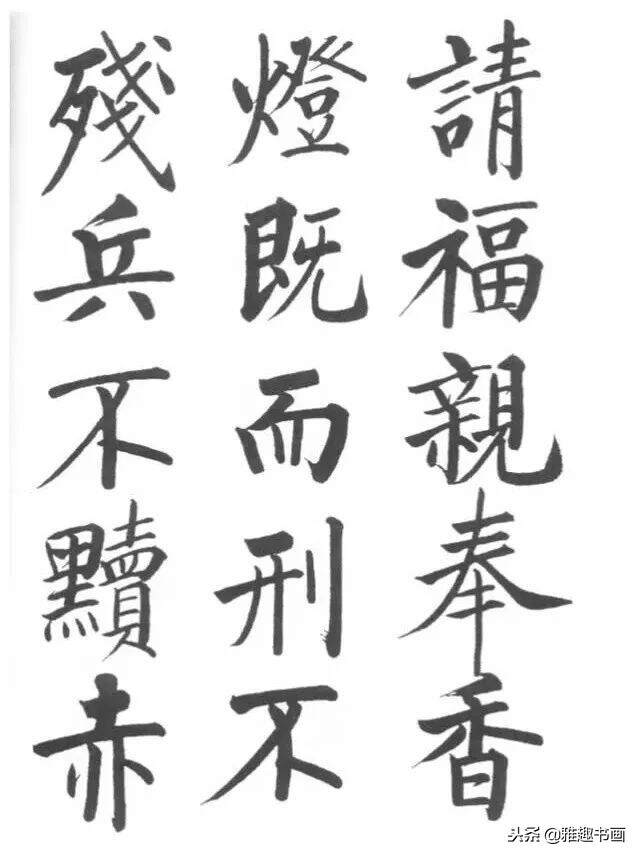 請福親奉香
燈既而刑不
殘兵不黷赤
头条@雅趣书画